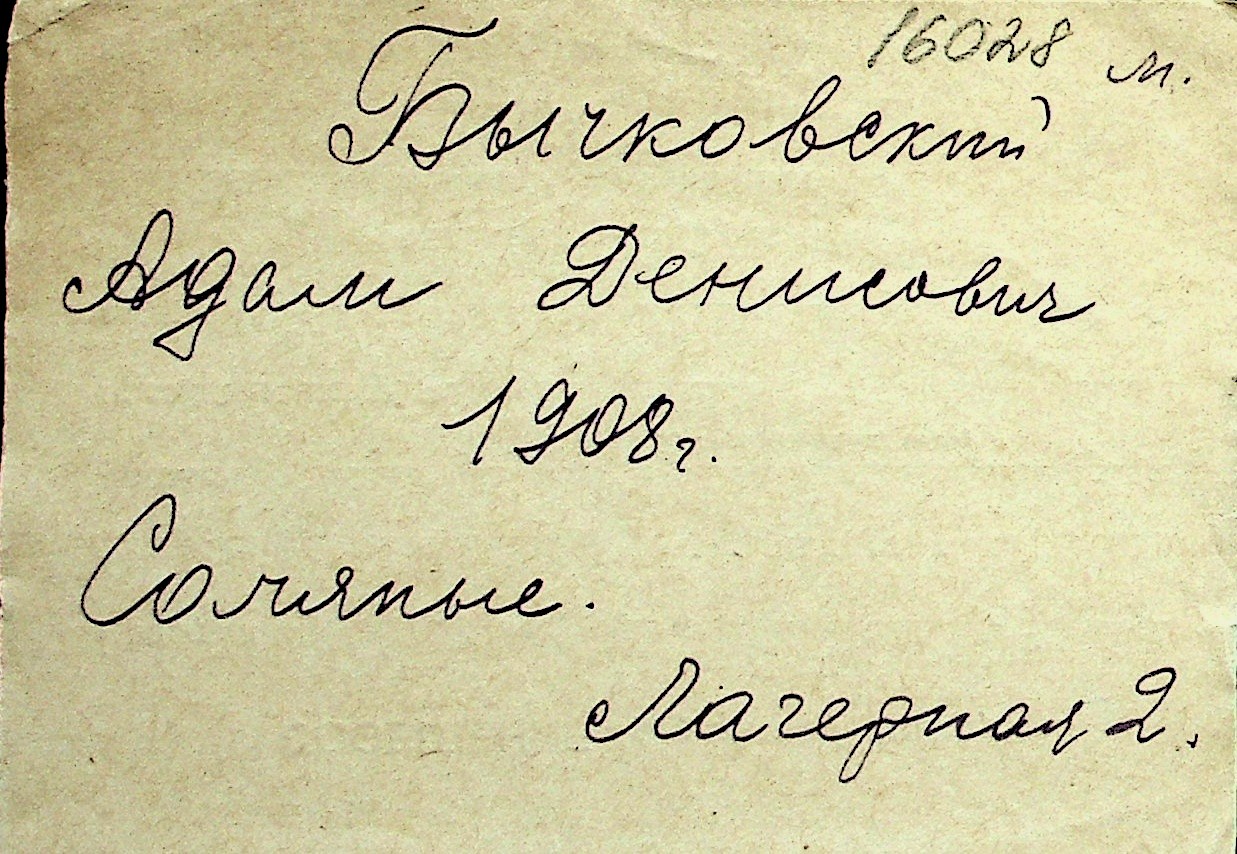 16028 м.
Бычковский
Адам Денисович
1908г.
Соляные.
Лагерная 2.